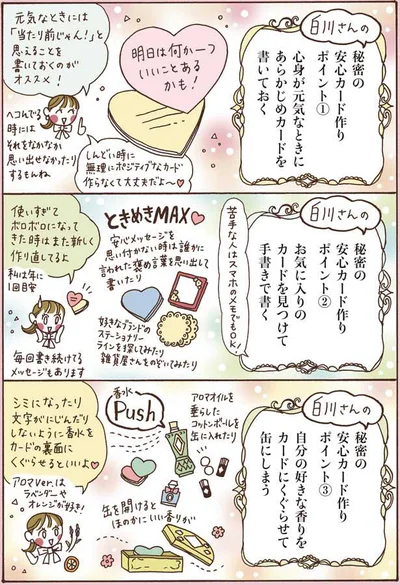 白川さんの
秘密の
安心カード作り
ポイント①
心身が元気なときに
あらかじめカードを
書いておく
明日は何か一つ
いいことある
かも!
元気なときには
「当たり前じゃん!」と
思えることを
書いておくのが
オススメ!
ヘコんでる
時には
それをなかなか
思い出せなかったり
するもんね
しんどい時に
無理にポジティブなカード
作らなくて大丈夫だよ〜♥
白川さんの
秘密の
安心カード作り
ポイント②
お気に入りの
カードを見つけて
手書きで書く
苦手な人はスマホのメモでもOK!
ときめきMAX♡
安心メッセージを
思い付かない時は誰かに
言われた褒め言葉を思い出して
書いたり
好きなブランドの
ステーショナリー
ラインを探してみたり
雑貨屋さんをのぞいてみたり
使いすぎて
ボロボロになって
きた時はまた新しく
作り直してるよ
私は年に
1回目安
毎回書き続けてる
メッセージもあります
白川さんの
秘密の
安心カード作り
ポイント③
自分の好きな香りを
カードにくぐらせて
缶にしまう
香水
Push
アロマオイルを
垂らした
コットンボールを
缶に入れたり
缶を開けると
ほのかにいい香りが
シミになったり
文字がにじんだり
しないように香水を
カードの裏面に
くぐらせるといいよ♥
アロマVer.は
ラベンダーや
オレンジが好き!